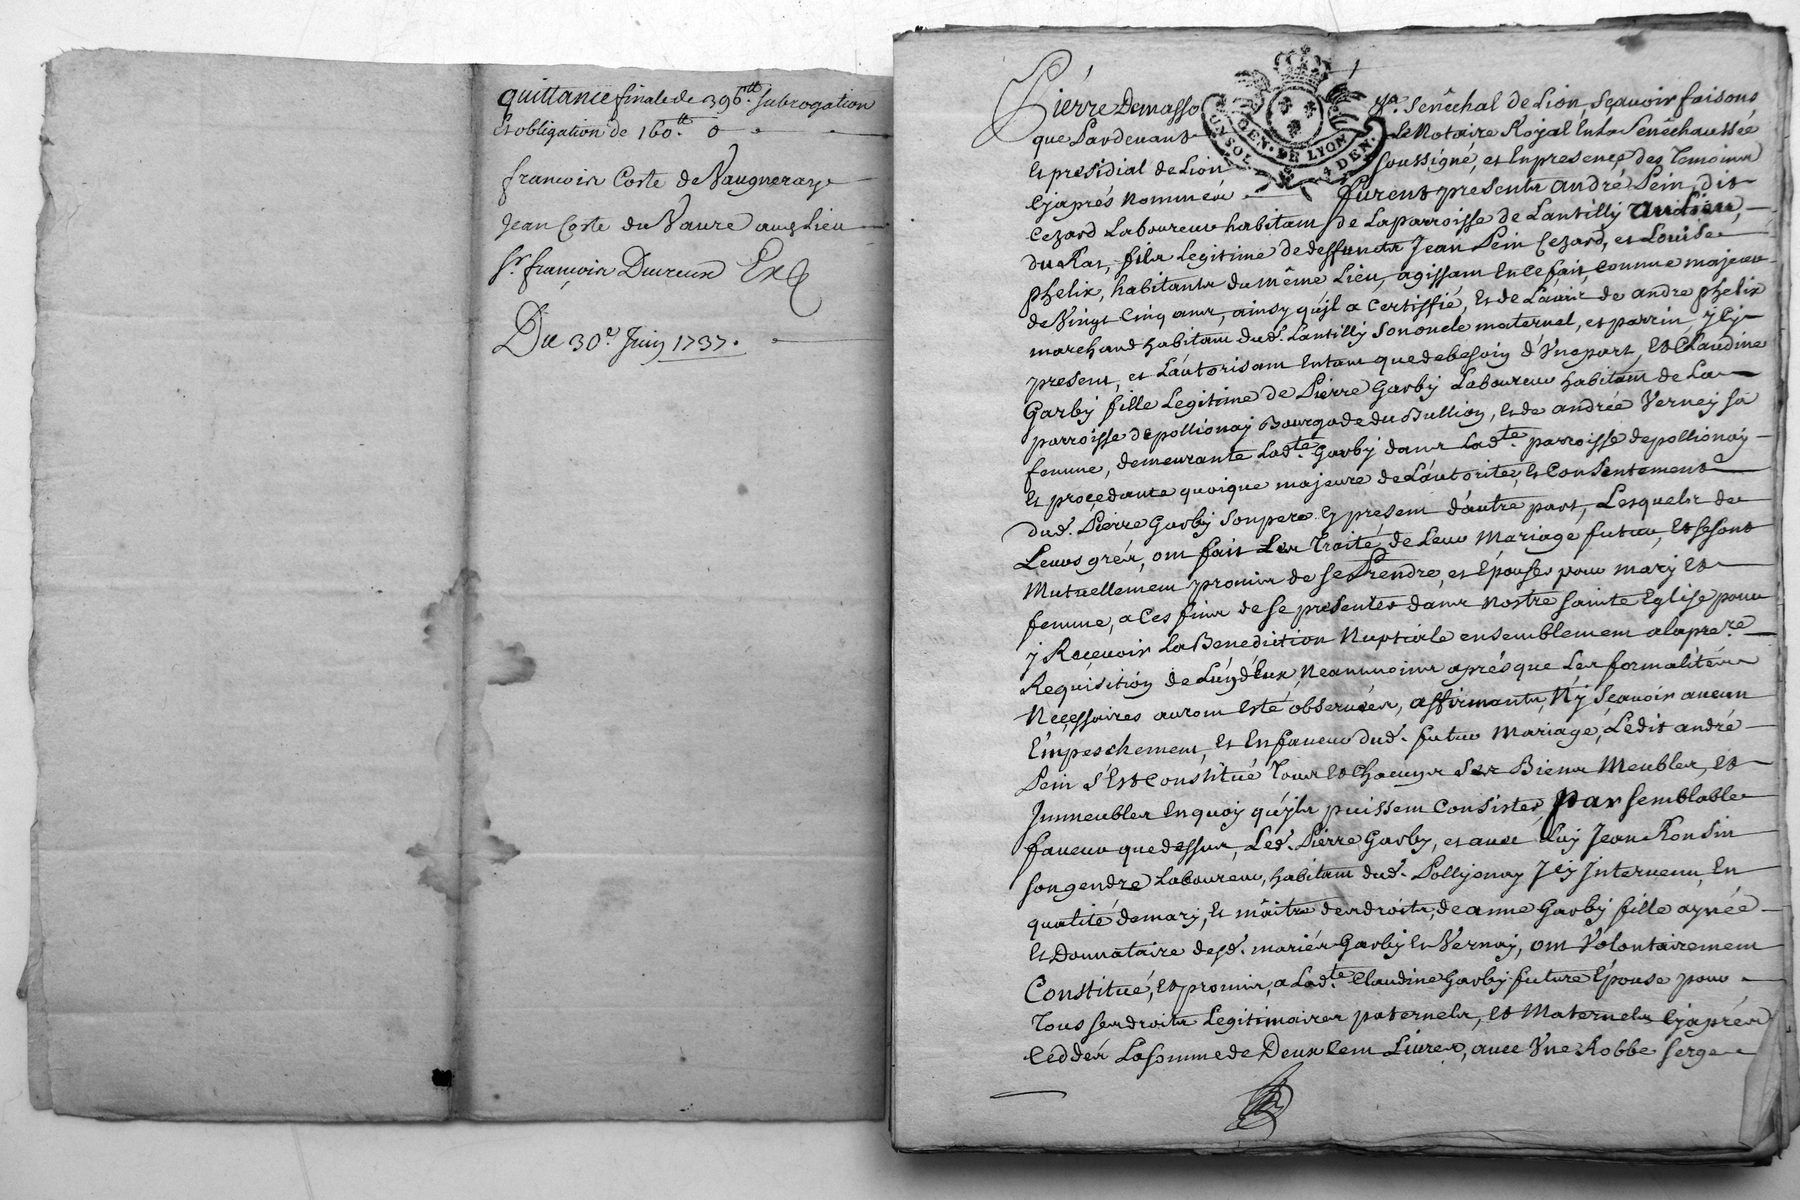 quittance finale de 396.tt subrogation
Et obligation de 160.tt
francoir Coste de Vaugneray
Jean Coste du Vaure aud Lieu
Sr françoir Ducreux
Du 30.e Juin 1737.
Pierre Demasso Senêchal de Lion Sçavoir faisons
que Pardevant Le Notaire Royal En La Senêchaussée
Et presidial de Lion soussigné, et En presence des Temoins
Cy aprés Nommés furent presents andré Pein, dit
Cezard Laboureur habitant de La parroisse de Lantilly au Lieu
du Ras, fils Legitime de deffuncts Jean Pein Cezard, et Louise
phelix, habitants du même Lieu, agissant En ce fait comme majeur
de Vingt Cinq ans, ainsy qu'jl a Certiffié, Et de L'avis de andre phelix
marchand habitant dud. Lantilly son oncle maternel, et parrin, jcy
present, et L'autorisant En tant que de besoin d'Vne part, Et Claudine
Garby fille Legitime de Pierre Garby Laboureur habitant de La
parroisse de pollionay Bourgade du Bullion, Et de andrée Verney sa
femme, demeurante Lad.te Garby dans Lad.te parroisse de pollionay
Et proçedante quoique majeure de L'autorité, Et Consentement
dud. Pierre Garby son pere Cy present d'autre part, Lesquels de
Leurs grés, ont fait Les Traité de Leur Mariage futur, Et se sont
Mutuellement promis de se Prendre, et Epouser pour mary Et
femme, a Ces fins de se presenter dans Nostre sainte Eglise pour
y Recevoir La Benediction Nuptiale ensemblement a la pre.re
Requisition de L'un d'Eux, Neanmoins aprés que Les formalités
Neçessaires auront Esté observées, affirmants, N'y Sçavoir aucun
Empeschement, Et En faveur dud. futur Mariage, Ledit andré
Pein s'Est Constitué Tous Et Chacuns Ses Biens Meubles, Et
Jmmeubles En quoy qu'jls puissent Consister, par semblable
faveur que dessus, Led. Pierre Garby, et avec Luy Jean Ronsin
son gendre Laboureur, habitant dud. Pollyonay Jcy Jntervenu, En
qualité de mary, Et maître des droits, de anne Garby fille aynée
Et Donnataire desd. mariés Garby Et Verney, ont Volontairement
Constitué, Et promis, a Lad.te Claudine Garby future Epouse pour
Tous ses droits Legitimaires paternels, Et Maternels Cy aprés
Ceddés La somme de Deux Cent Livres, avec Vne Robbe serge
GEN. DE LYON
UN SOL
4 DEN.